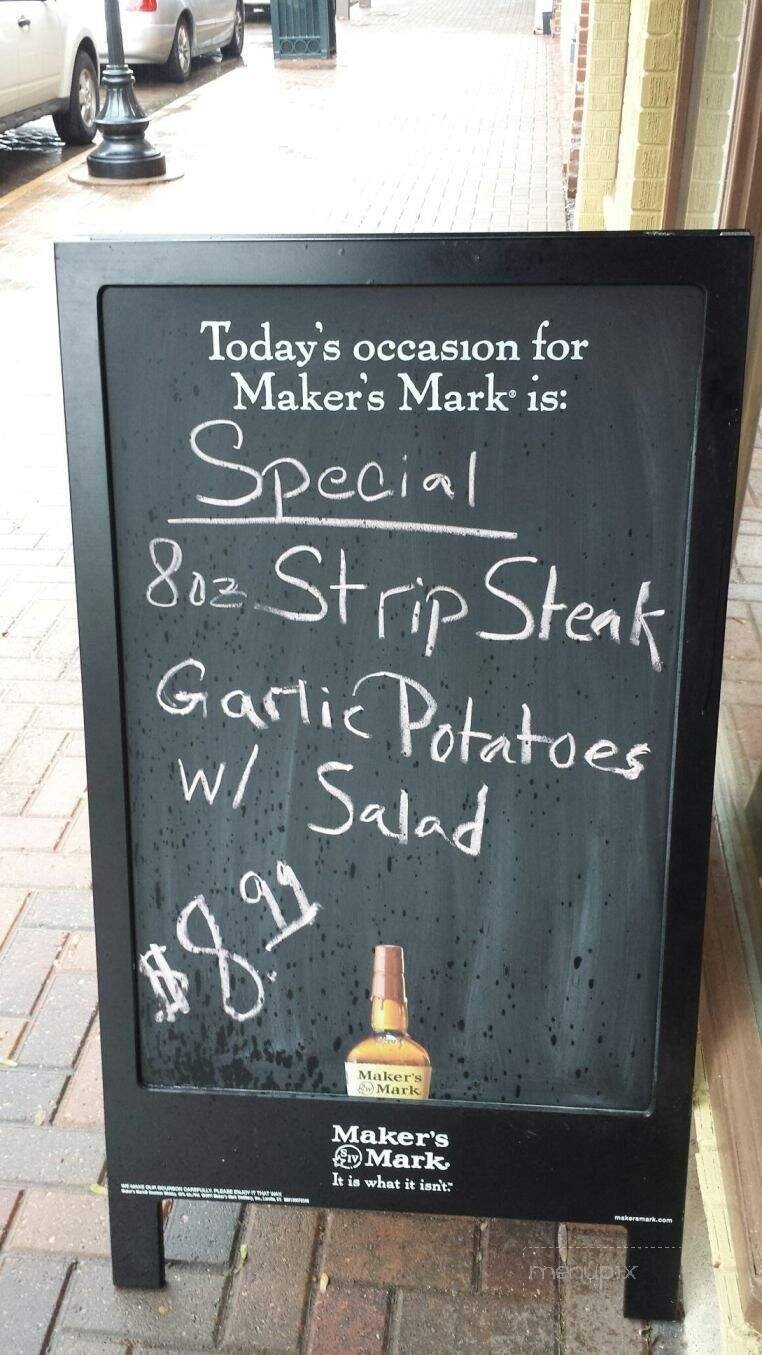 Today's occasion for
Maker's Mark® is:
Special
8oz Strip Steak
Garlic Potatoes
w/ Salad
$8.99
Maker's
SIV Mark
Maker's
SIV Mark
It is what it isn't.™
WE MAKE OUR BOURBON CAREFULLY. PLEASE ENJOY IT THAT WAY.
makersmark.com
menupix